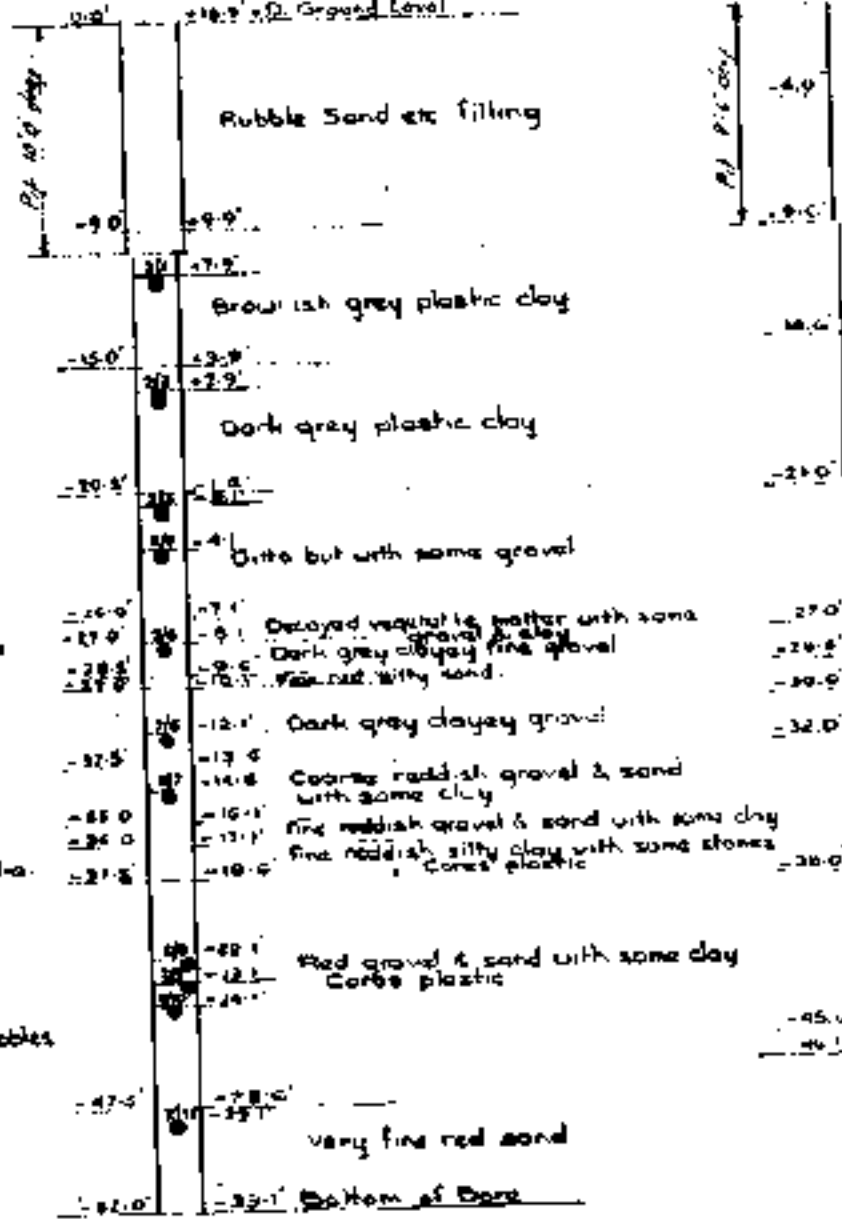 0.0' +18.9' O.D. Ground Level
Pit 10'0" deep
Rubble Sand etc filling
-9.0' +9.9'
+7.9'
Brownish grey plastic clay
-15.0' +3.9'
+2.9'
Dark grey plastic clay
-20.5'
-4.1'
Ditto but with some gravel
-26.0' -7.1'
Decayed vegetable matter with some
gravel & clay
-27.0' -8.1'
Dark grey clayey fine gravel
-28.5' -9.6'
Fine red silty sand
-12.1'
Dark grey clayey gravel
-32.5' -13.6'
-14.6'
Coarse reddish gravel & sand
with some clay
-35.0 -16.1'
Fine reddish gravel & sand with some clay
-36.0 -17.1'
Fine reddish silty clay with some stones
Cores plastic
-37.5 -18.6'
-22.1'
Red gravel & sand with some clay
Cores plastic
-24.1'
-47.5' -28.6'
-29.1'
Very fine red sand
-52.0' -33.1' Bottom of Bore
Pit 9'6" deep
-4.0'
-9.6'
-21.0'
-27.0'
-32.0'
-38.0'
-45.0